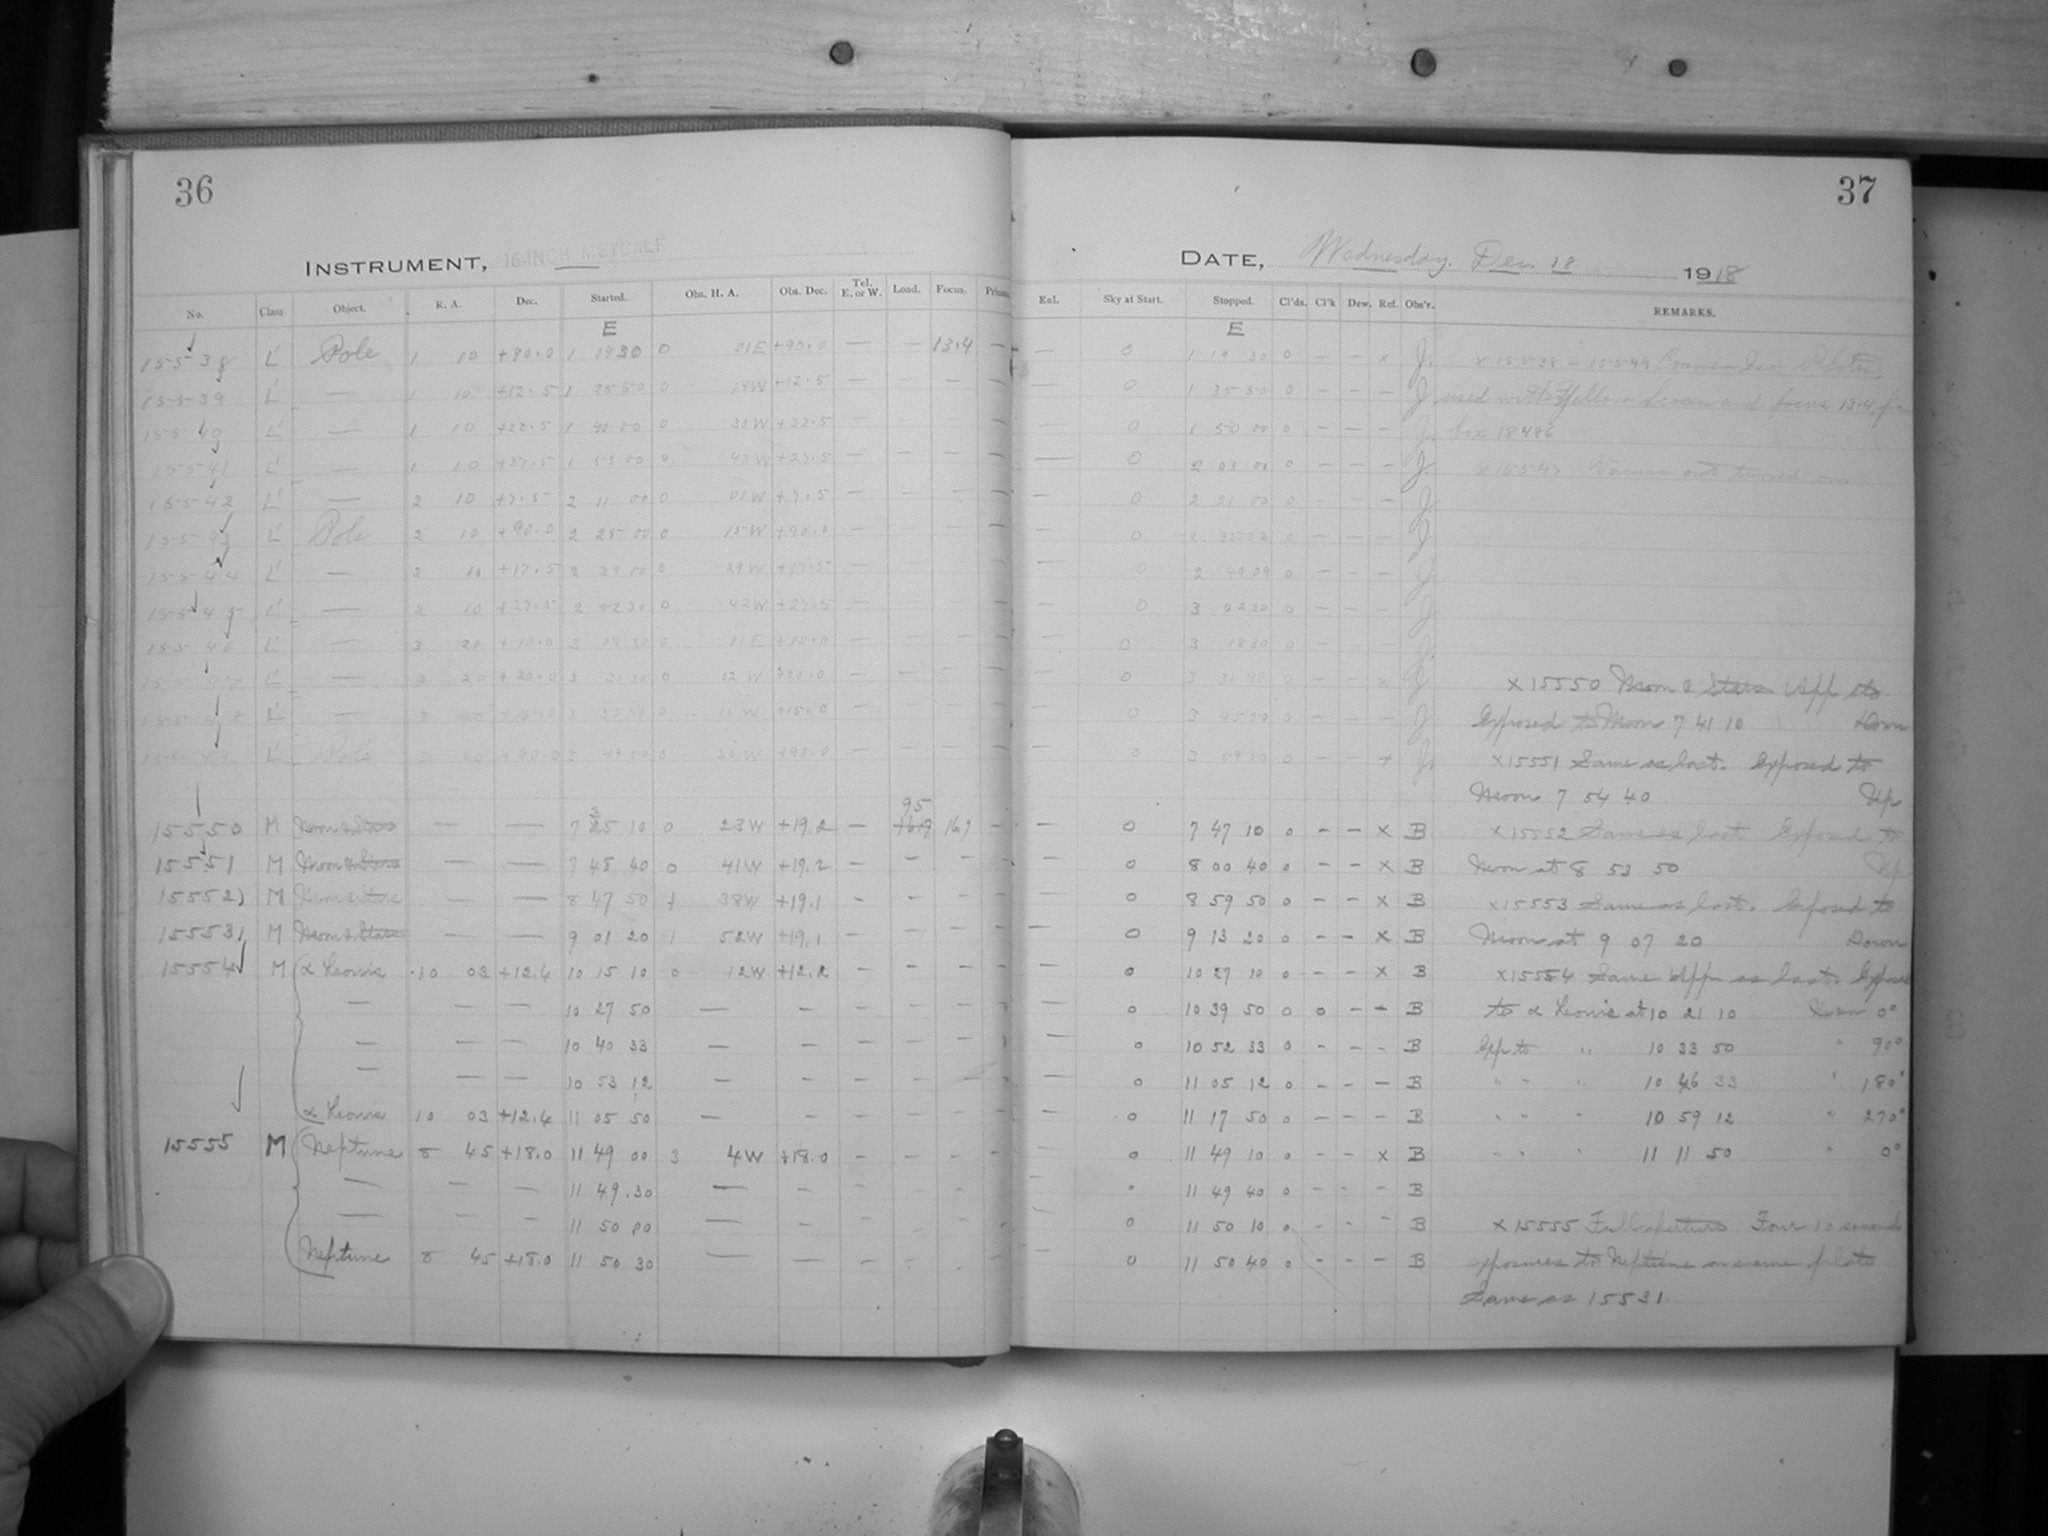 36
INSTRUMENT, 16-INCH METCALF
No. Class. Object. R. A. Dec. Started. Obs. H. A. Obs. Dec. Tel. E. or W. Load. Focus.
E
15538 L' Pole 1 10 +90.0 1 0930 0 01E +90.0 — — 13.4 —
15539 L' — 1 10 +12.5 1 25 50 0 14W +12.5 — — — —
15540 L' — 1 10 +22.5 1 40 00 0 30W +22.5 — — — —
15541 L' — 1 10 +27.5 1 53 00 0 43W +27.5 — — — —
15542 L' — 2 10 +7.5 2 11 00 0 01W +7.5 — — — —
15543 L' Pole 2 10 +90.0 2 25 00 0 15W +90.0 — — — —
15544 L' — 2 10 +17.5 2 39 00 0 29W +17.5 — — — —
15545 L' — 2 10 +27.5 2 52 30 0 42W +27.5 — — — —
15546 L' — 3 20 +10.0 3 08 30 0 11E +10.0 — — — —
15547 L' — 3 20 +20.0 3 21 40 0 02W +20.0 — — — —
15548 L' — 20 3 0 W +15.0
15549 L' Pole 20 +90.0 3 49 50 0 30W +90.0
95
15550 M Moon & Stars — — 7 35 10 0 23W +19.2 — 16.9 16.9 —
15551 M Moon & Stars — — 7 48 40 0 41W +19.2 — — — —
15552 M Moon & Stars — — 8 47 50 1 38W +19.1 — — — —
15553 M Moon & Stars — — 9 01 20 1 52W +19.1 — — — —
15554 M α Leonis 10 03 +12.4 10 15 10 0 12W +12.2 — — — —
— — — 10 27 50 — — — — — —
— — — 10 40 33 — — — — — —
— — — 10 53 12 — — — — — —
α Leonis 10 03 +12.4 11 05 50 — — — — — —
15555 M Neptune 8 45 +18.0 11 49 00 3 4W +18.0 — — — —
— — — 11 49 30 — — — — — —
— — — 11 50 00 — — — — — —
Neptune 8 45 +18.0 11 50 30 — — — — — —
37
DATE, Wednesday. Dec. 18 1918
Enl. Sky at Start. Stopped. Cl'ds. Cl'k Dew. Ref. Obs'r. REMARKS.
E
— 0 1 19 30 0 — — x J. x 15538 – 15549 Cramer Iso Plates,
— 0 1 35 50 0 — — — J used with Yellow Screen and focus 13.4, from
— 0 1 50 00 0 — — — J. box 18486
— 0 2 03 00 0 — — — J. x 15547 Vacuum not turned on.
— 0 2 21 00 0 — — — J.
0 2 35 0 — — — J
0 2 49 0 — — — J
— 0 3 02 30 0 — — — J.
— 0 3 18 30 0 — — J.
— 0 3 31 40 0 — — x J
x 15550 Moon & Stars App sto
— 0 3 45 0 — — — J.
Exposed to Moon 7 41 10 Down
— 0 3 59 50 0 — — x J.
x 15551 Same as last. Exposed to
Moon 7 54 40 Up
— 0 7 47 10 0 — — x B x 15552 Same as last Exposed to
— 0 8 00 40 0 — — x B Moon at 8 53 50 Up
— 0 8 59 50 0 — — x B x 15553 Same as last. Exposed to
— 0 9 13 20 0 — — x B Moon at 9 07 20 Down
— 0 10 27 10 0 — — x B x 15554 Same App as last. Exposed
— 0 10 39 50 0 0 — — B to α Leonis at 10 21 10 0°
— 0 10 52 33 0 — — — B Exp to " 10 33 50 " 90°
0 11 05 12 0 — — — B " " " 10 46 33 " 180°
0 11 17 50 0 — — — B " " " 10 59 12 " 270°
— 0 11 49 10 0 — — x B " " " 11 11 50 " 0°
— 0 11 49 40 0 — — — B
— 0 11 50 10 0 — — — B x 15555 Full aperture Four 10 second
— 0 11 50 40 0 — — — B exposures to Neptune on same plate
Same as 15531.